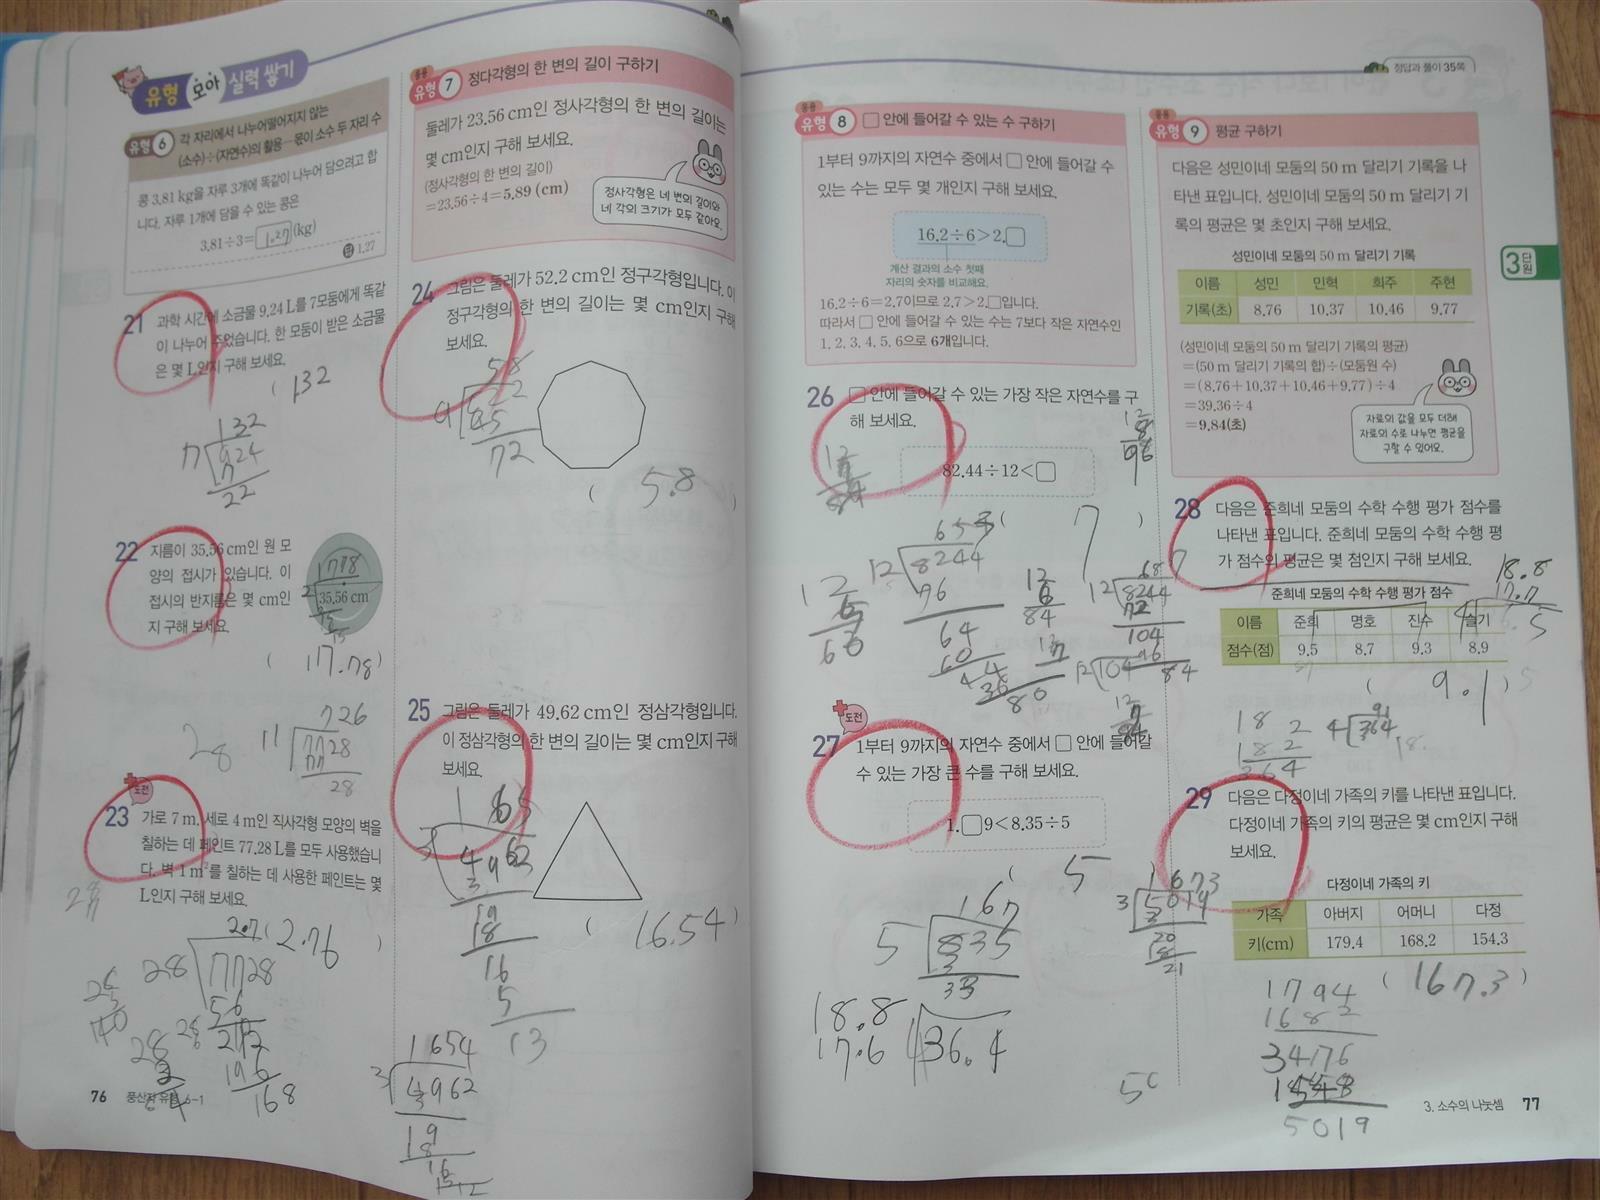 유형 모아 실력 쌓기
유형 6 각 자리에서 나누어떨어지지 않는
(소수)÷(자연수)의 활용 - 몫이 소수 두 자리 수
콩 3.81 kg을 자루 3개에 똑같이 나누어 담으려고 합
니다. 자루 1개에 담을 수 있는 콩은
3.81÷3=1.27(kg)
답 1.27
21 과학 시간에 소금물 9.24 L를 7모둠에게 똑같
이 나누어 주었습니다. 한 모둠이 받은 소금물
은 몇 L인지 구해 보세요.
( 1.32
132
7 924
7
22
22 지름이 35.56 cm인 원 모
양의 접시가 있습니다. 이
접시의 반지름은 몇 cm인
지 구해 보세요.
1778
2 35.56 cm
( 17.78)
28
726
11 7728
77
28
도전
23 가로 7 m, 세로 4 m인 직사각형 모양의 벽을
칠하는 데 페인트 77.28 L를 모두 사용했습니
다. 벽 1 m²를 칠하는 데 사용한 페인트는 몇
L인지 구해 보세요.
( 2.76 )
28 7728
56
212
196
168
76 풍산자 유형 6-1
응용
유형 7 정다각형의 한 변의 길이 구하기
둘레가 23.56 cm인 정사각형의 한 변의 길이는
몇 cm인지 구해 보세요.
(정사각형의 한 변의 길이)
=23.56÷4=5.89 (cm)
정사각형은 네 변의 길이와
네 각의 크기가 모두 같아요.
24 그림은 둘레가 52.2 cm인 정구각형입니다. 이
정구각형의 한 변의 길이는 몇 cm인지 구해
보세요.
58
9
45
72
( 5.8 )
25 그림은 둘레가 49.62 cm인 정삼각형입니다.
이 정삼각형의 한 변의 길이는 몇 cm인지 구해
보세요.
3 4962
3
19
18
16
5
13
( 16.54)
1654
3 4962
3
19
18
16
정답과 풀이 35쪽
응용
유형 8 □ 안에 들어갈 수 있는 수 구하기
1부터 9까지의 자연수 중에서 □ 안에 들어갈 수
있는 수는 모두 몇 개인지 구해 보세요.
16.2÷6>2.□
계산 결과의 소수 첫째
자리의 숫자를 비교해요.
16.2÷6=2.7이므로 2.7>2.□입니다.
따라서 □ 안에 들어갈 수 있는 수는 7보다 작은 자연수인
1, 2, 3, 4, 5, 6으로 6개입니다.
26 □ 안에 들어갈 수 있는 가장 작은 자연수를 구
해 보세요.
12
8
96
82.44÷12<□
( 7 )
12 8244
96
64
60
12
6
84
687
12 8244
72
104
96
84
도전
27 1부터 9까지의 자연수 중에서 □ 안에 들어갈
수 있는 가장 큰 수를 구해 보세요.
1.□9<8.35÷5
( 5
167
5 835
33
18.8
17.6
4 36.4
응용
유형 9 평균 구하기
다음은 성민이네 모둠의 50 m 달리기 기록을 나
타낸 표입니다. 성민이네 모둠의 50 m 달리기 기
록의 평균은 몇 초인지 구해 보세요.
성민이네 모둠의 50 m 달리기 기록
이름 성민 민혁 희주 주현
기록(초) 8.76 10.37 10.46 9.77
(성민이네 모둠의 50 m 달리기 기록의 평균)
=(50 m 달리기 기록의 합)÷(모둠원 수)
=(8.76+10.37+10.46+9.77)÷4
=39.36÷4
=9.84(초)
자료의 값을 모두 더해
자료의 수로 나누면 평균을
구할 수 있어요.
3단원
28 다음은 준희네 모둠의 수학 수행 평가 점수를
나타낸 표입니다. 준희네 모둠의 수학 수행 평
가 점수의 평균은 몇 점인지 구해 보세요.
18.8
17.7
준희네 모둠의 수학 수행 평가 점수
이름 준희 명호 진수 슬기
점수(점) 9.5 8.7 9.3 8.9
( 9.1)
18 2
18 2
364
91
4 364
29 다음은 다정이네 가족의 키를 나타낸 표입니다.
다정이네 가족의 키의 평균은 몇 cm인지 구해
보세요.
1673
3 5019
3
20
18
21
다정이네 가족의 키
가족 아버지 어머니 다정
키(cm) 179.4 168.2 154.3
( 167.3)
1794
1682
3476
5019
3. 소수의 나눗셈 77